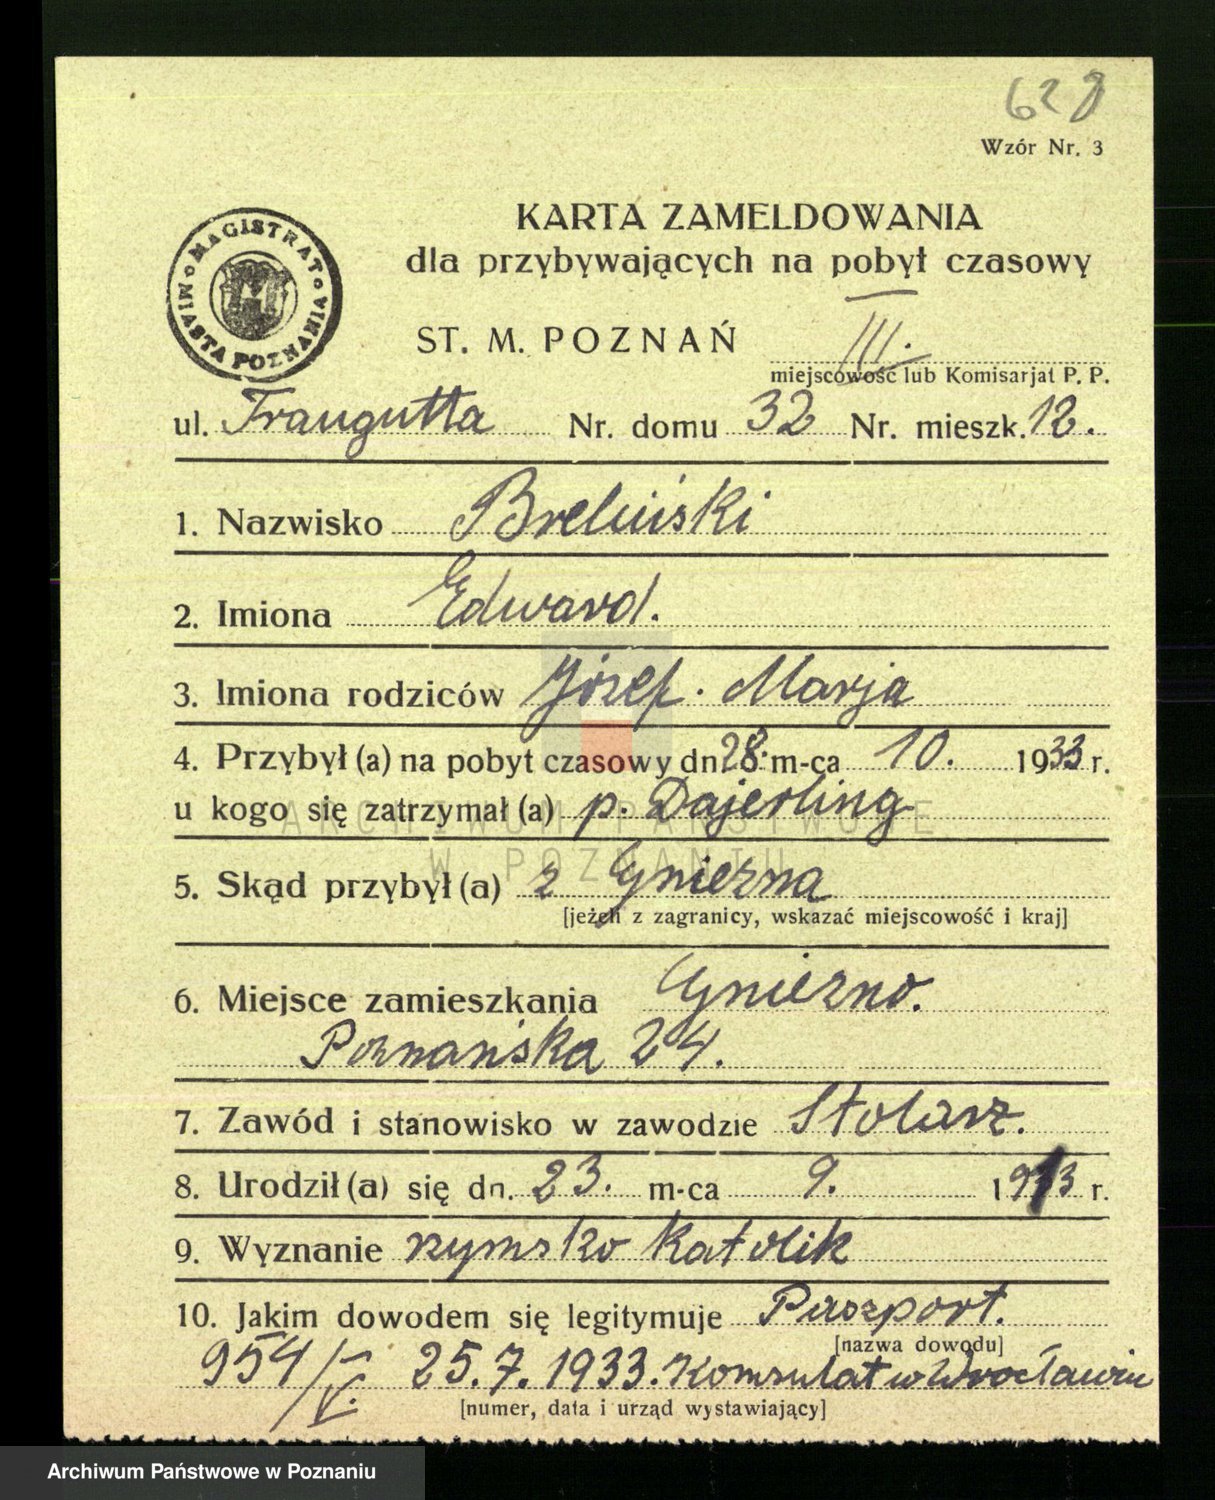 628
Wzór Nr. 3
MAGISTRAT MIASTA POZNANIA
KARTA ZAMELDOWANIA
dla przybywających na pobyt czasowy
ST. M. POZNAŃ III.
miejscowość lub Komisarjat P. P.
ul. Traugutta Nr. domu 32 Nr. mieszk. 12.
1. Nazwisko Breliński
2. Imiona Edward.
3. Imiona rodziców Józef. Marja
4. Przybył (a) na pobyt czasowy dn. 28. m-ca 10. 1933 r.
u kogo się zatrzymał (a) p. Dajerling
ARCHIWUM PAŃSTWOWE
W POZNANIU
5. Skąd przybył (a) z Gniezna
[jeżeli z zagranicy, wskazać miejscowość i kraj]
6. Miejsce zamieszkania Gniezno.
Poznańska 24.
7. Zawód i stanowisko w zawodzie Stolarz.
8. Urodził (a) się dn. 23. m-ca 9. 1913 r.
9. Wyznanie rzymsko katolik
10. Jakim dowodem się legitymuje Paszport.
[nazwa dowodu]
954/V. 25.7.1933. Konsulat w Wrocławiu
[numer, data i urząd wystawiający]
Archiwum Państwowe w Poznaniu